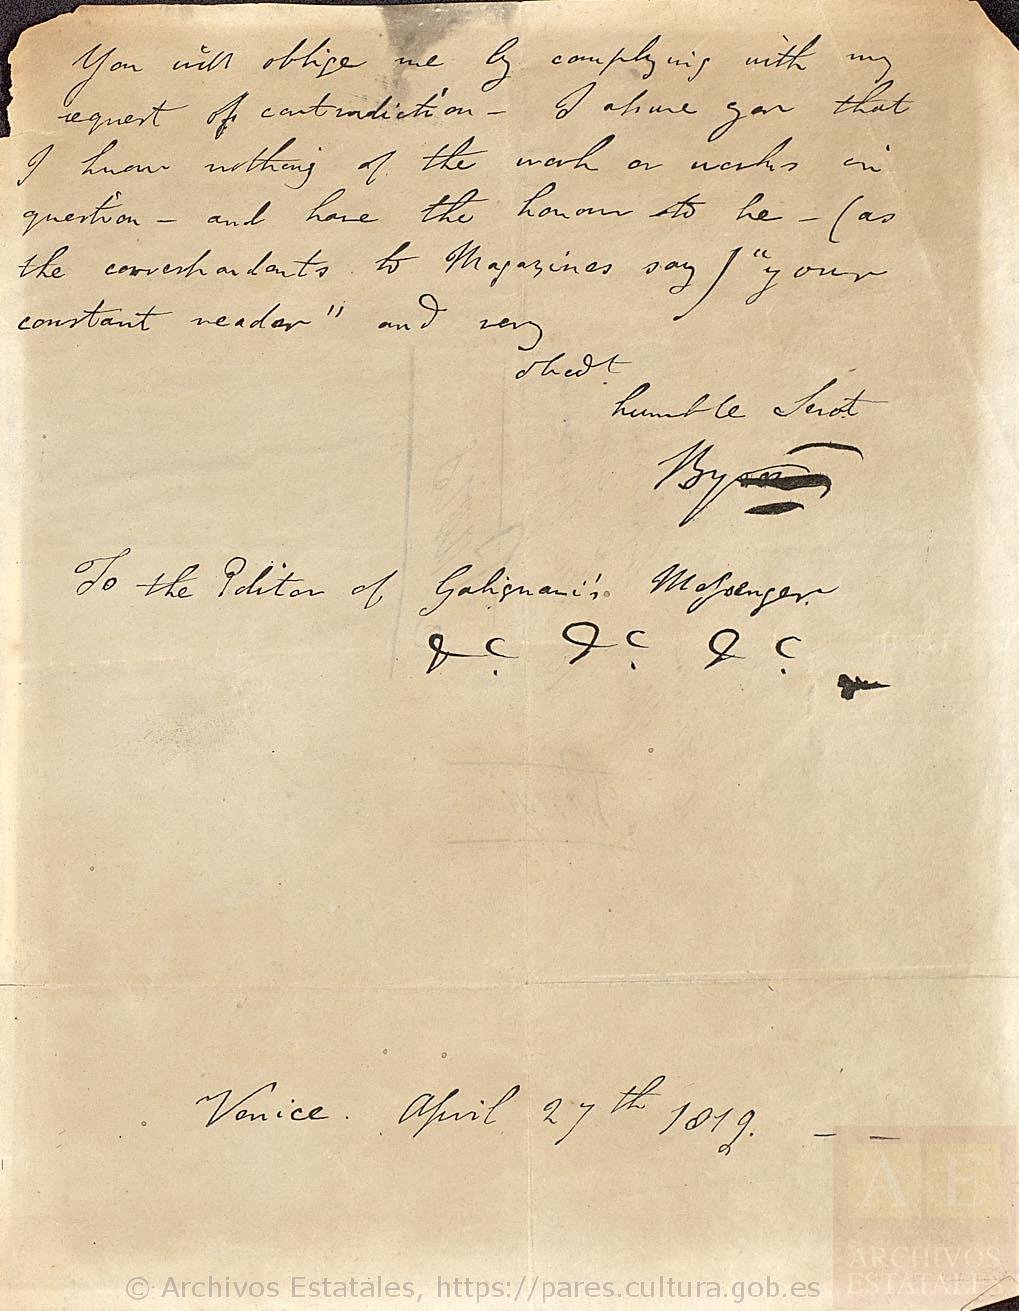 You will oblige me by complying with my
request of contradiction – I assure you that
I know nothing of the work or works in
question – and have the honour to be – (as
the correspondents to Magazines say) "your
constant reader" and very
obedt
humble Servt
Byron
To the Editor of Galignani's Messenger.
&c. &c. &c.
Venice. April 27th 1819. – –
AE
ARCHIVOS
ESTATALES
© Archivos Estatales, https://pares.cultura.gob.es